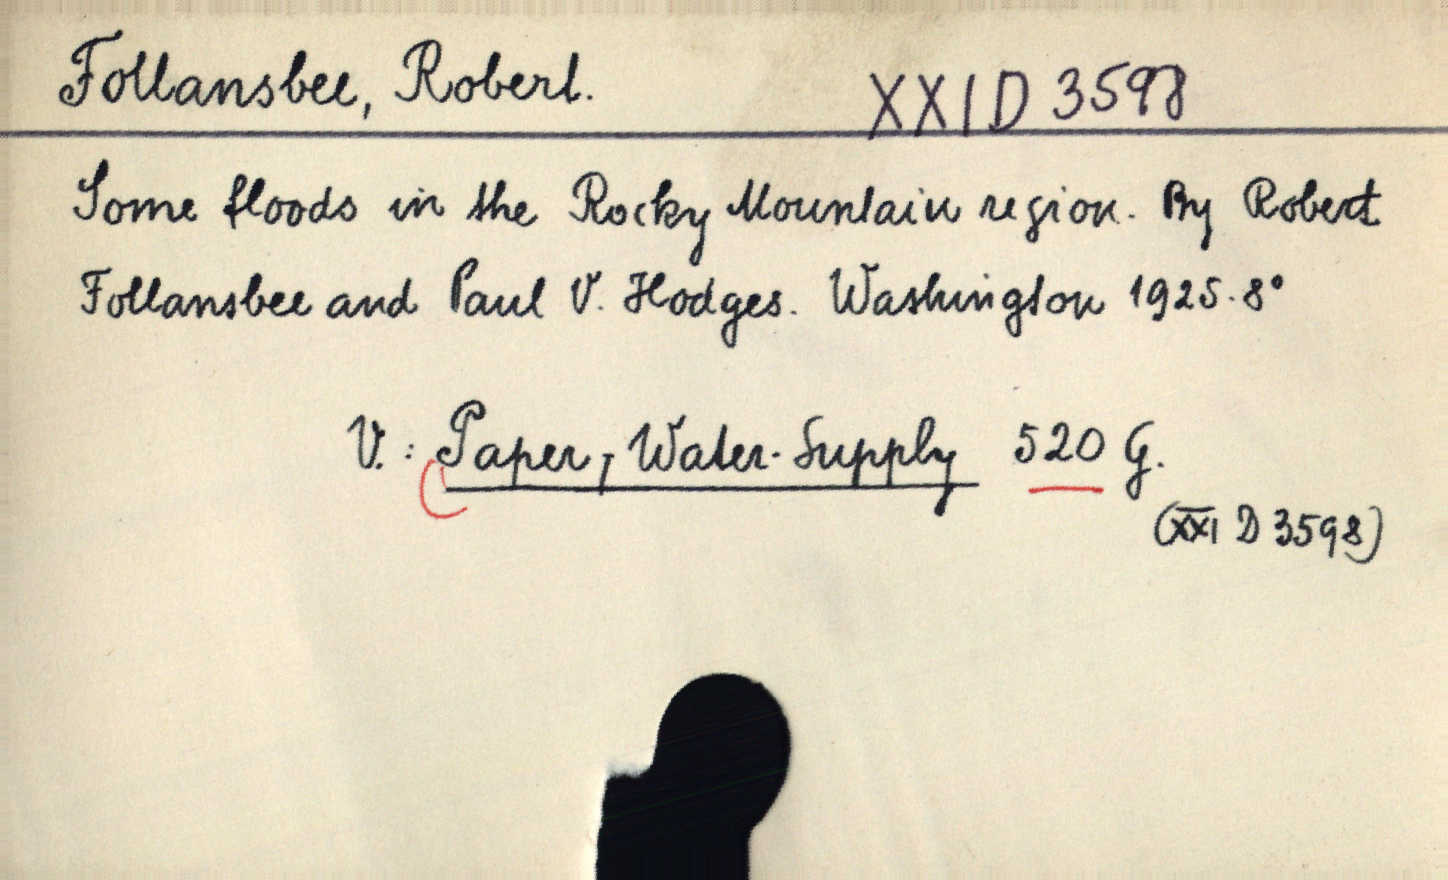 Follansbee, Robert.
XXI D 3598
Some floods in the Rocky Mountain region. By Robert
Follansbee and Paul V. Hodges. Washington 1925. 8°
V.: Paper, Water-Supply 520 G.
(XXI D 3598)